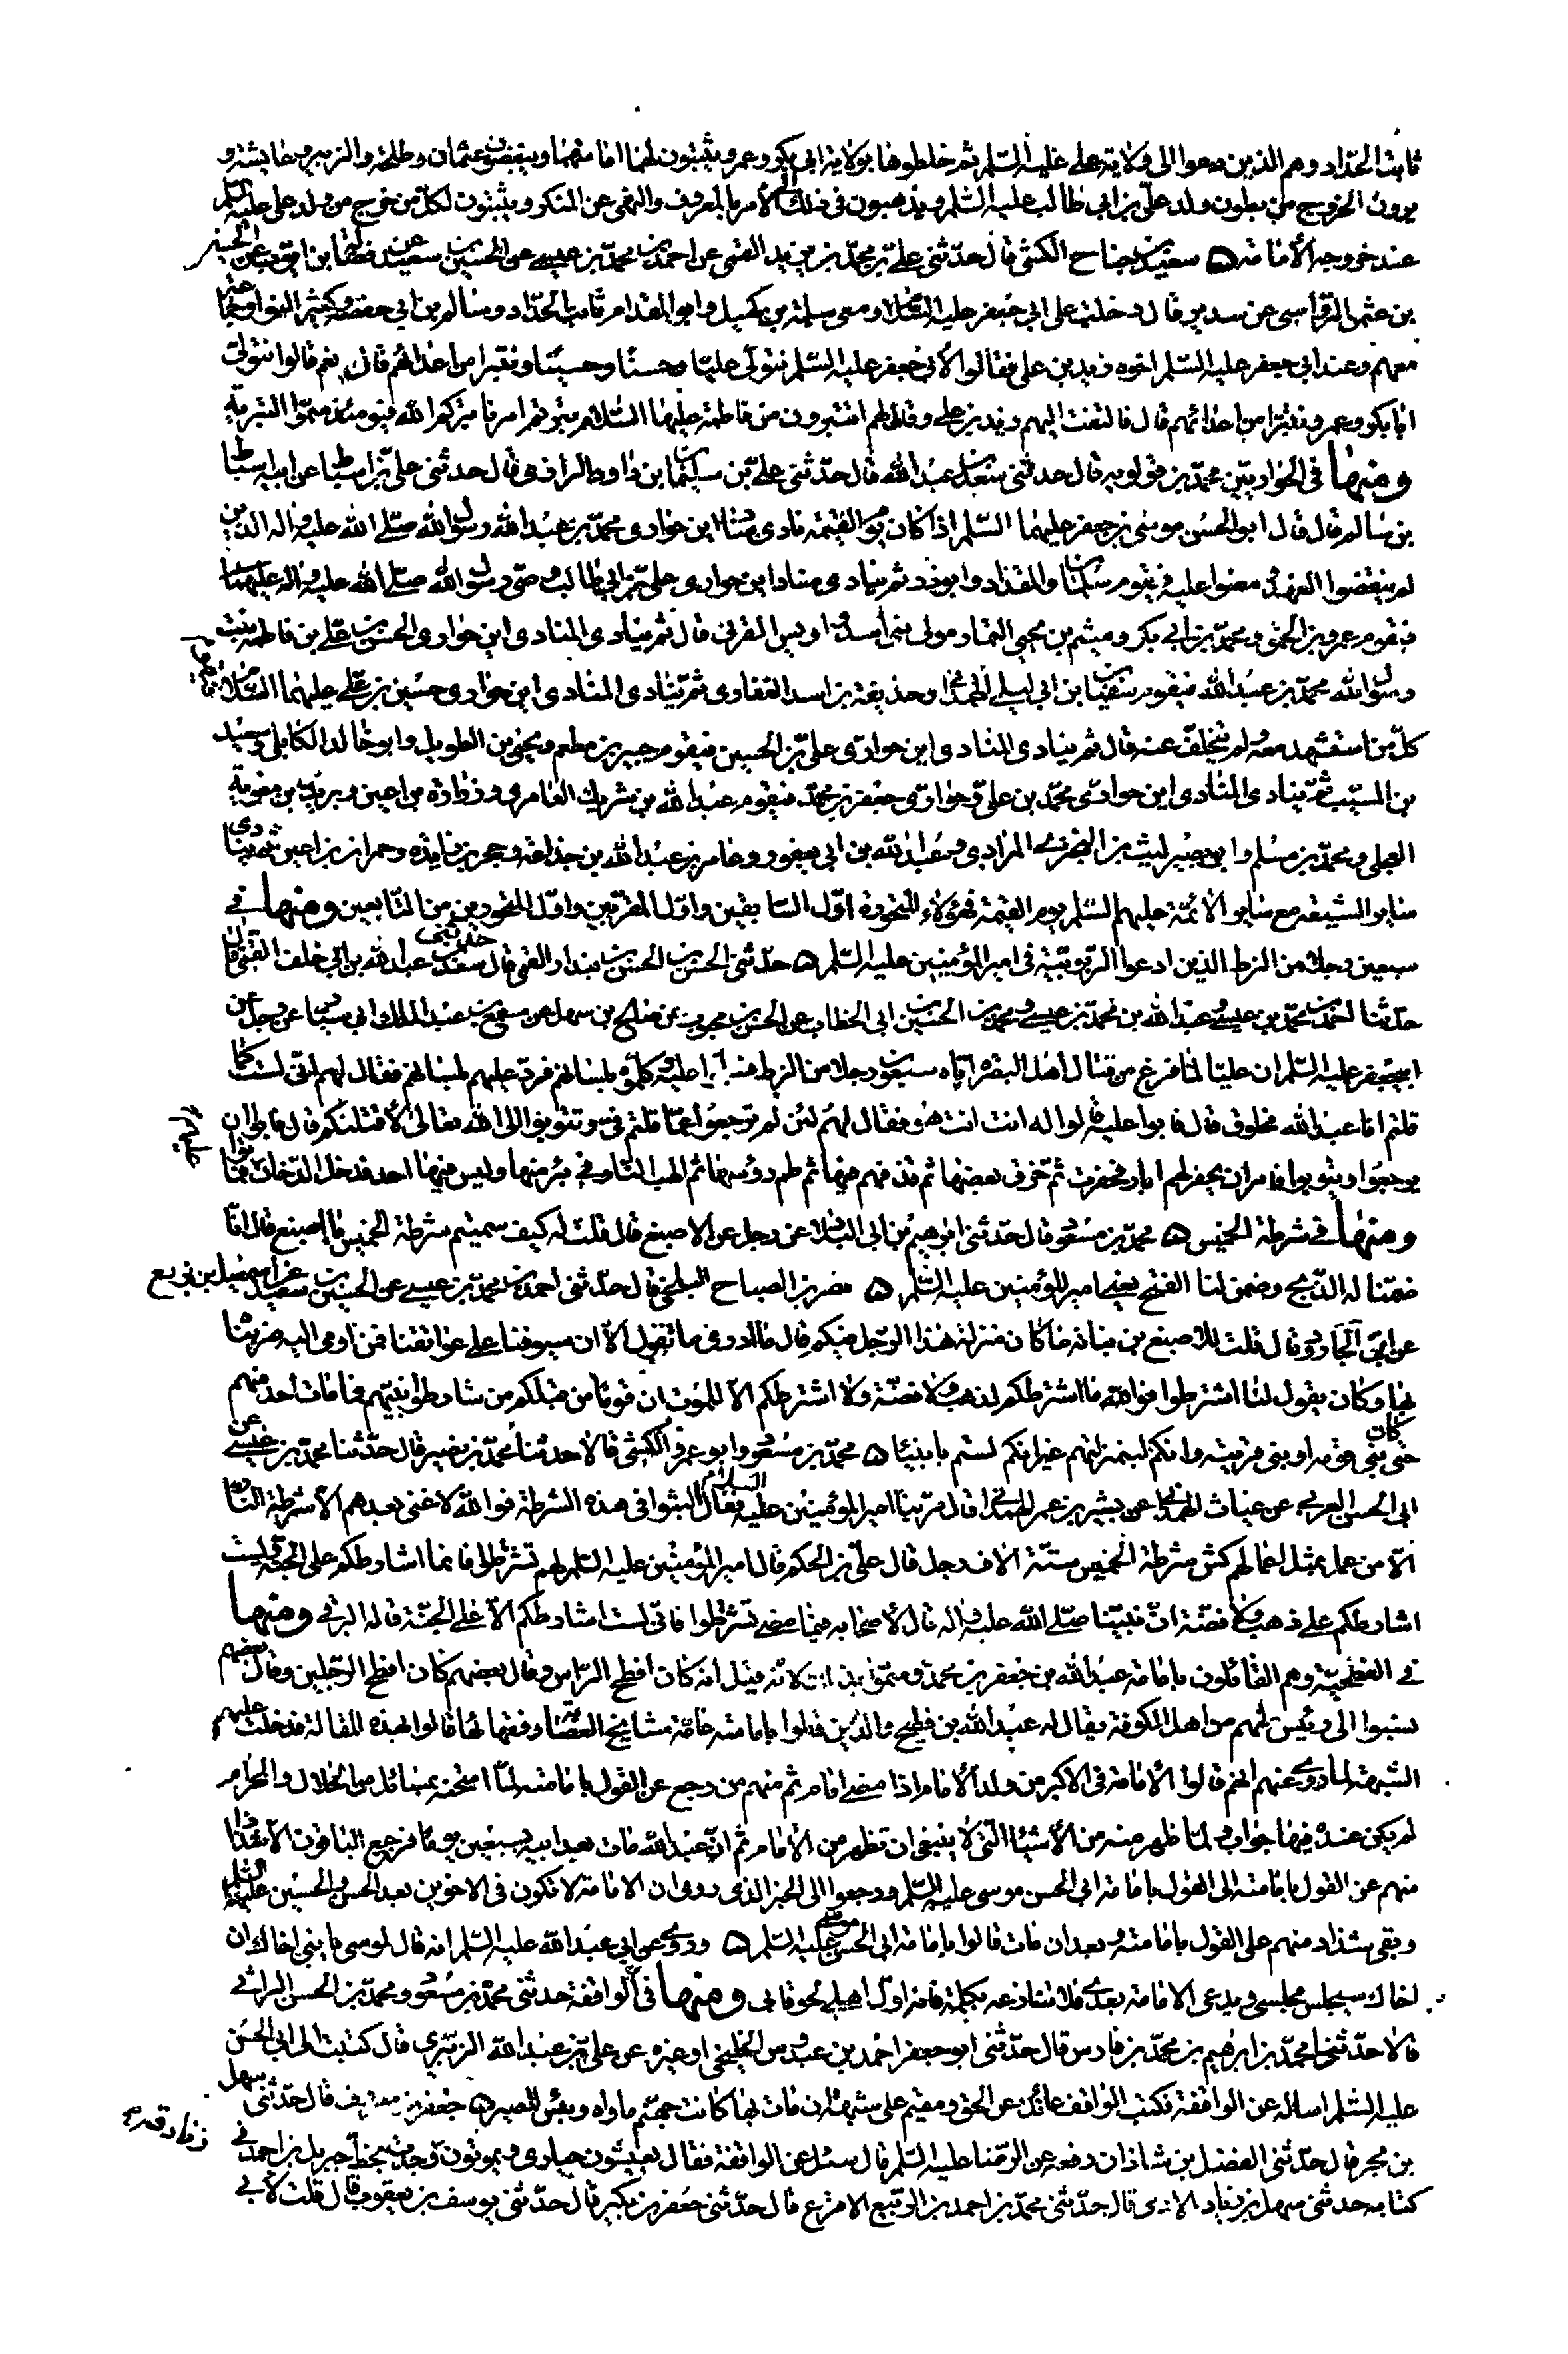 ثابت الحدّاد وهم الذين دعوا الى ولاية على عليه السّلم ثم خلطوها بولاية ابى بكر وعمر ويثبتون لهما امامتهما ويبغضون عثمان وطلحة والزبير وعايشة و
يرون الخروج مع بطون ولد علىّ بن ابى طالب عليه السّلم ويذهبون فى ذلك الى الأمر بالمعروف والنهى عن المنكر ويثبتون لكلّ من خرج من ولد على عليه السّلم
عند خروجه الأمامة ۵ سعد بن جناح الكشى قال حدّثنى علىّ بن محمّد بن يزيد القمى عن احمد بن محمّد بن عيسى عن الحسين بن سعيد عن فضالة بن ايّوب عن الحسين
بن عثمن الرّوّاسى عن سدير قال دخلت على ابى جعفر عليه السّلم ومعى سلمة بن كهيل وابو المقدام ثابت الحدّاد وسالم بن ابى حفصة وكثير النوا وجماعة
معهم وعند ابى جعفر عليه السّلم اخوه زيد بن على فقالوا لأبى جعفر عليه السّلم نتولّى عليّا وحسنًا وحسينًا ونتبرا من اعدائهم قال نعم قالوا نتولىّ
ابا بكر وعمر ونتبرّا من اعدائهم قال فالتفت اليهم زيد بن على وقال لهم اتتبرون من فاطمة عليها السّلام بترتم امرنا بتركم الله فيومئذ سمّوا البتريه
ومنها فى الحواريّين محمّد بن قولويه قال حدثنى سعد بن عبد الله قال حدّثنى علىّ بن سليمان بن داود الرازى قال حدثنى علىّ بن اسباط عن ابيه اسباط
بن سالم قال قال ابو الحسن موسى بن جعفر عليهما السّلم اذا كان يوم القيمة نادى مناد اين حوارى محمّد بن عبد الله رسول الله صلّى الله عليه واله الذين
لم ينقضوا العهد ومضوا عليه فيقوم سلمان والمقداد وابو ذر ثم ينادى مناد اين حوارى علىّ بن ابى طالب وصىّ رسول الله صلّى الله عليه واله عليهما
فيقوم عمرو بن الحمق ومحمّد بن ابى بكر وميثم بن يحيى التمار مولى بنى اسد واويس القرنى قال ثم ينادى المنادى اين حوارى الحسن بن على بن فاطمة بنت
رسول الله محمّد بن عبد الله فيقوم سفين بن ابى ليلى الهمدانى وحذيفة بن اسد الغفارى ثمّ ينادى المنادى اين حوارى حسين بن على عليهما السّلام
كلّ من استشهد معه ولم يتخلّف عنه قال ثم ينادى المنادى اين حوارى علىّ بن الحسين فيقوم جبير بن مطعم ويحيى بن الطويل وابو خالد الكابلى وسعيد
بن المسيّب ثمّ ينادى المنادى اين حوارى محمّد بن على وحوارى جعفر بن محمّد فيقوم عبد الله بن شريك العامرى وزرارة بن اعين وبريد بن معوية
العجلى ومحمّد بن مسلم وابو بصير ليث بن البخترى المرادى وعبد الله بن ابى يعفور وعامر بن عبد الله بن جذاعة وحجر بن زايدة وحمران بن اعين ثم ينادى
ساير الشيعة مع ساير الأئمّة عليهم السّلم يوم القيمة فهؤلاء المتحورة اوّل السّابقين واوّل المقرّبين واوّل المتحورين من التّابعين ومنها فى
سبعين رجلا من الزط الذين ادعوا الرّبوبيّة فى امير المؤمنين عليه السّلم ۵ حدّثنى الحسين بن الحسن بن بندار القمى قال حدثنى سعد بن عبد الله بن ابى خلف القمّى قال
حدّثنا احمد بن محمّد بن عيسى وعبد الله بن محمّد بن عيسى ومحمّد بن الحسين بن ابى الخطاب عن الحسن بن محبوب عن صالح بن سهل عن مسمع بن عبد الملك ابى سيّار عن رجل عن
ابى جعفر عليه السّلم ان عليّا لمّا فرغ من قتال اهل البصرة اتاه سبعون رجلا من الزط فسلموا عليه وكلّموه بلسانهم فردّ عليهم بلسانهم فقال لهم انّى لست كما
قلتم انا عبد الله مخلوق قال فابوا عليه وقالوا له انت انت هو فقال لهم لئن لم ترجعوا عمّا قلتم فىّ وتتوبوا الى الله تعالى لأقتلنّكم قال فابوا ان
يرجعوا ويتوبوا فامر ان يحفر لهم ابار فحفرت ثمّ خرق بعضها ثم قذفهم فيها ثم طم رؤسها ثم الهب النّار فى بئر منها وليس فيها احد فدخل الدّخان عليهم فماتوا
ومنها فى شرطة الخميس ۵ محمّد بن مسعود قال حدّثنى ابرهيم بن ابى البلاد عن رجل عن الاصبغ قال قلت له كيف سميتم شرطة الخميس يا اصبغ قال انّا
ضمّنّا له الذّبح وضمن لنا الفتح يعنى امير المؤمنين عليه السّلم ۵ نصر بن الصباح البلخى قال حدّثنى احمد بن محمّد بن عيسى عن الحسين بن سعيد عن اسمعيل بن بزيع
عن ابى الجارود قال قلت للاصبغ بن نباتة ما كان منزلة هذا الرّجل فيكم قال ما ادرى ما تقول الاّ ان سيوفنا على عواتقنا فمن اومى اليه ضربناه
بها وكان يقول لنا اشترطوا فوالله ما اشتراطكم لذهب ولا فضّة ولا اشتراطكم الاّ للموت ان قومًا من قبلكم من بنى اسرائيل تشارطوا بينهم فما مات احد منهم
حتى كان نبى قومه او نبى قريته وانكم لبمنزلتهم غير انكم لستم بانبياء ۵ محمّد بن مسعود وابو عمرو الكشى قالا حدثنا محمّد بن نصير قال حدّثنا محمّد بن عيسى عن
ابى الحسن العرنى عن غياث الهمدانى عن بشير بن عمرو الهمدانى قال مرّ بنا امير المؤمنين عليه السلام فقال البثوا فى هذه الشرطة فوالله لا غنى بعدهم الا شرطة النّار
الاّ من عمل بمثل اعمالهم كش شرطة الخميس ستّة الاف رجل قال علىّ بن الحكم قال امير المؤمنين عليه السّلم لهم تشرّطوا فانما اشارطكم على الجنّة وليست
اشارطكم على ذهب ولا فضّة انّ نبيّنا صلّى الله عليه واله قال لأصحابه فيما مضى تشرّطوا فانّى لست اشارطكم الا على الجنّة قاله البرقى ومنها
فى الفطحيّة وهم القائلون بامامة عبد الله بن جعفر بن محمّد وسمّوا بذلك لانّه قيل انه كان افطح الرّاس وقال بعضهم كان افطح الرّجلين وقال بعضهم
نسبوا الى رئيس لهم من اهل الكوفة يقال له عبد الله بن فطيح والذين قالوا بامامته عامّة مشايخ العصابة وفقهائها قالوا بهذه المقالة فدخلت عليهم
الشبهة لما روى عنهم انهم قالوا الأمامة فى الاكبر من ولد الأمام اذا مضى امام ثم منهم من رجع عن القول بامامته لمّا امتحنه بمسائل من الحلال والحرام
لم يكن عنده فيها جواب ولمّا ظهر منه من الأشياء التى لا ينبغى ان تظهر من الأمام ثم انّ عبد الله مات بعد ابيه بسبعين يومًا فرجع الباقون الاّ شذاذا
منهم عن القول بامامته الى القول بامامة ابى الحسن موسى عليه السّلم ورجعوا الى الخبر الذى روى ان الامامة لا تكون فى الاخوين بعد الحسن والحسين عليهما السّلم
وبقى شذاذ منهم على القول بامامته وبعد ان مات قالوا بامامة ابى الحسن موسى عليه السّلم ۵ وروى عن ابى عبد الله عليه السّلم انه قال لموسى يا بنى اخاك ان
اخاك سيجلس مجلسى ويدعى الامامة بعدى فلا تنازعه بكلمة فانه اوّل اهلى لحوقا بى ومنها فى الواقفة حدثنى محمّد بن مسعود ومحمّد بن الحسن البراثى
قالا حدّثنى محمّد بن ابرهيم بن محمّد بن فارس قال حدّثنى ابو جعفر احمد بن عبدوس الخلنجى او غيره عن علىّ بن عبد الله الزبيرى قال كتبت الى ابى الحسن
عليه السّلم اساله عن الواقفة فكتب الواقف عائد عن الحق ومقيم على سيّئة ان مات بها كانت جهنّم ماواه وبئس المصير ۵ جعفر بن معروف قال حدّثنى سهل
بن بحر قال حدّثنى الفضل بن شاذان رفعه عن الرّضا عليه السّلم قال سئل عن الواقفة فقال يعيشون حيارى ويموتون زنادقة وجدت بخطّ جبريل بن احمد فى
كتابه حدثنى سهل بن زياد الادمى قال حدّثنى محمّد بن احمد بن الرّبيع الاقرع قال حدّثنى جعفر بن بكير قال حدّثنى يوسف بن يعقوب قال قلت لأبى